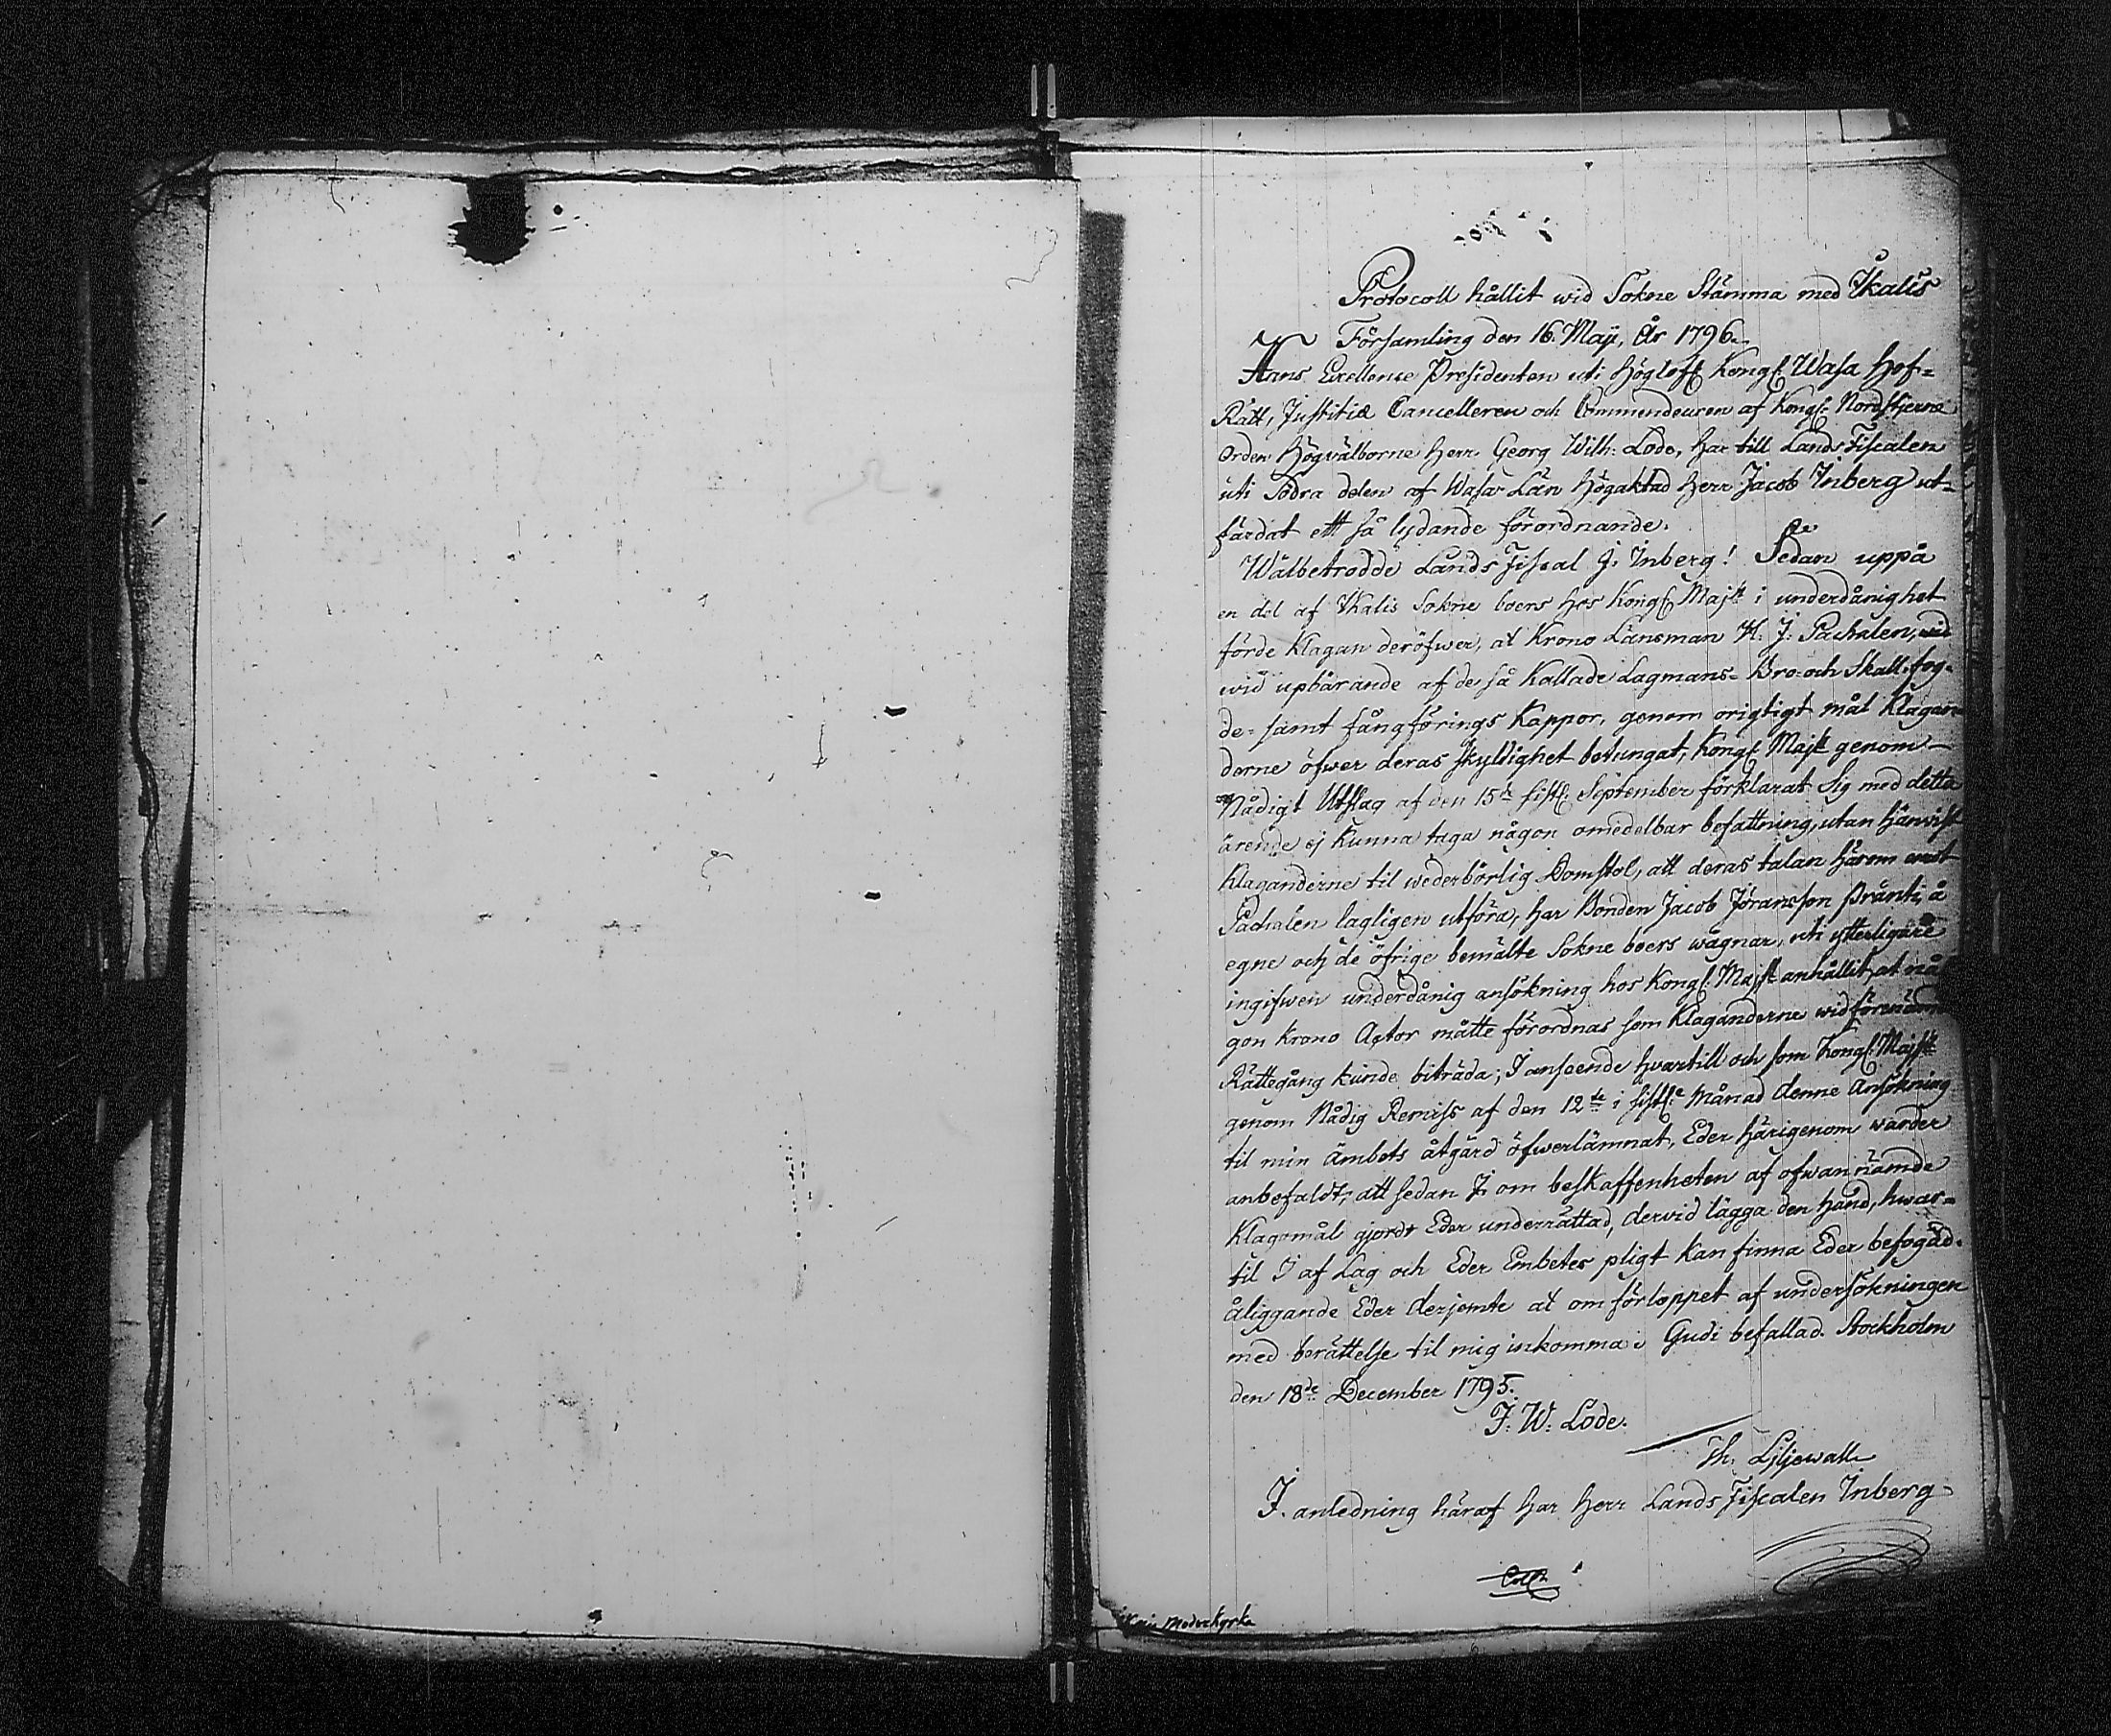 Protocoll hållit wid Sokne Stämma med Ikalis
Församling den 16. Maji, År 1796.
Hans Excellence Presidenten uti Höglofl. Kongl. Wasa Hof-
Rätt, Justitiæ Cancelleren och Commendeuren af Kongl. Nordstjerne
Orden Högvälborne Herr Georg Wilh: Lode, har till Lands Fiscalen
uti Södra delen af Wasa Län Högaktad Herr Jacob Inberg ut-
färdat ett så lydande förordnande.
Wälbetrodde Lands Fiscal J. Inberg! Sedan uppå
en del af Ikalis Sokne boers hos Kongl. Majst. i underdånighet
förde Klagan deröfwer, at Krono Länsman H: J: Pachalen, wid
wid upbärande af de så Kallade Lagmans- Bro- och Skall-fog-
de- samt fångförings Kappor, genom origtigt mål Klagan-
derne öfwer deras skyldighet betungat, Kongl. Majst. genom
Nådigt Utslag af den 15de sistl. September förklarat Sig med detta
ärende ej Kunna taga någon omedelbar befattning, utan hänvist
Klaganderne til wederbörlig Domstol, att deras talan härom emot
Pachalen lagligen utföra, har Bonden Jacob Jöransson Pränti, å
egne och de öfrige bemälte Sokne boers wägnar, uti ytterligare
ingifwen underdånig ansökning hos Kongl. Majst. anhållit, at nå-
gon Krono Actor måtte förordnas som Klaganderne wid förenämde
Rättegång kunde biträda; I anseende hvartill och som Kongl. Majst.
genom Nådig Remiss af den 12te i sistl. Månad denne Ansökning
til min Ämbets åtgärd öfwerlämnat, Eder härigenom warder
anbefaldt, att sedan I om beskaffenheten af ofwannämde
Klagomål gjordt Eder underrättad, dervid lägga den hand, hwar-
til I af Lag och Eder Embetes pligt kan finna Eder befogad.
åliggande Eder derjemte at om förloppet af undersökningen
med berättelse til mig inkomma. Gudi befallad. Stockholm
den 18de December 1795.
J: W: Lode.
Th. Liljewalk
I anledning häraf har Herr Lands Fiscalen Inberg
Moderkyrka